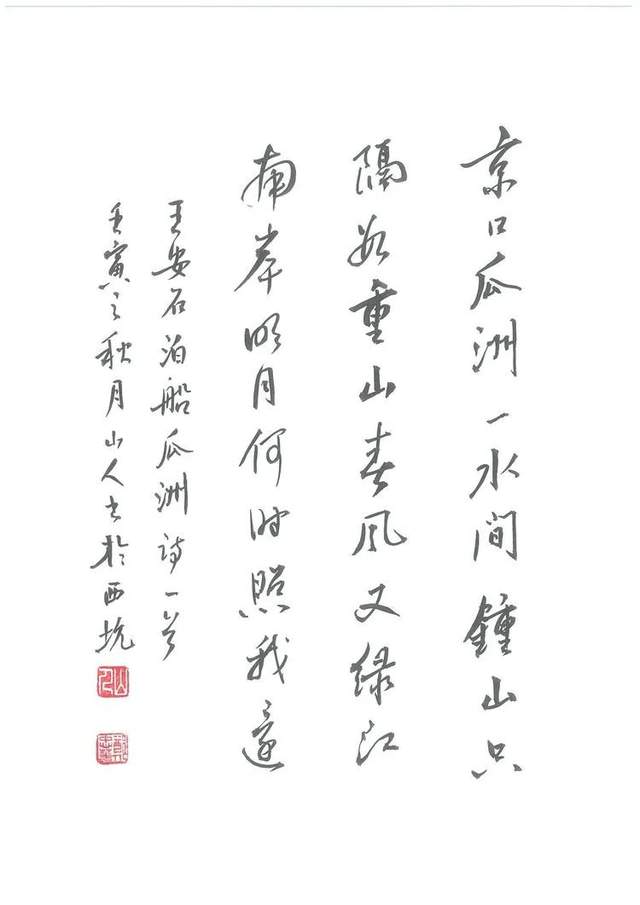 京口瓜洲一水间鍾山只
隔数重山春风又绿江
南岸明月何时照我还
王安石泊船瓜洲诗一首
壬寅之秋月山人书于西坑